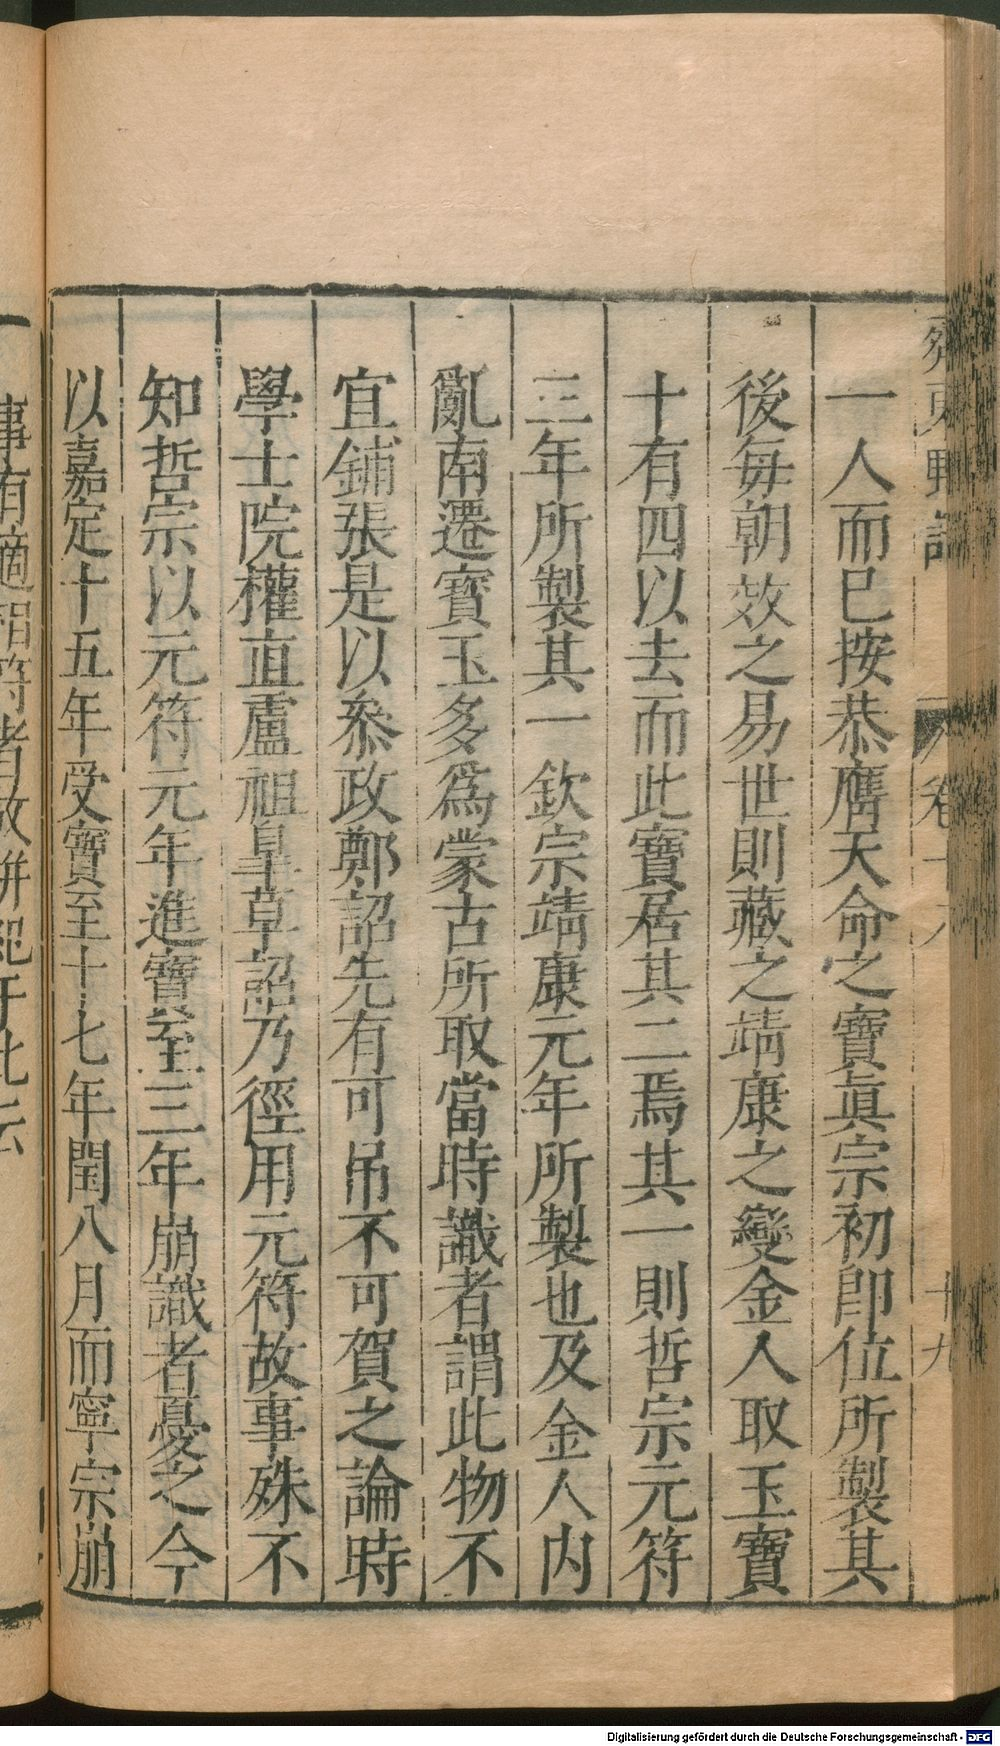 一人而已按恭膺天命之寶眞宗初卽位所製其
後每朝效之易世則藏之靖康之變金人取玉寶
十有四以去而此寶居其二焉其一則哲宗元符
三年所製其一欽宗靖康元年所製也及金人内
亂南遷寶玉多爲蒙古所取當時識者謂此物不
宜鋪張是以叅政鄭詔先有可吊不可賀之論時
學士院權直盧祖臯草詔乃徑用元符故事殊不
知哲宗以元符元年進寶至三年崩識者憂之今
以嘉定十五年受寶至十七年閏八月而寧宗崩
事有適相符者故倂記于此云
Digitalisierung gefördert durch die Deutsche Forschungsgemeinschaft - DFG